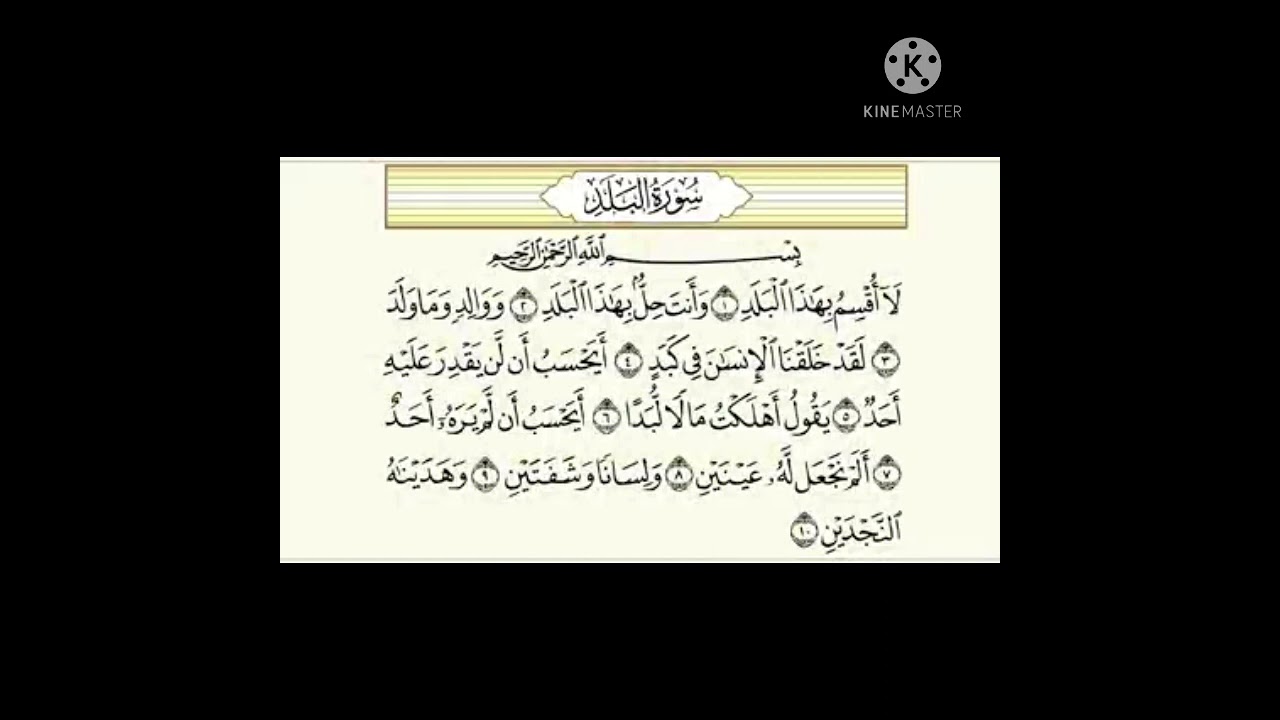 K
KINEMASTER
سُورَةُ الْبَلَدِ
بِسْمِ ٱللَّهِ ٱلرَّحْمَٰنِ ٱلرَّحِيمِ
لَآ أُقْسِمُ بِهَٰذَا ٱلْبَلَدِ ١ وَأَنتَ حِلٌّۢ بِهَٰذَا ٱلْبَلَدِ ٢ وَوَالِدٍ وَمَا وَلَدَ
٣ لَقَدْ خَلَقْنَا ٱلْإِنسَٰنَ فِى كَبَدٍ ٤ أَيَحْسَبُ أَن لَّن يَقْدِرَ عَلَيْهِ
أَحَدٌ ٥ يَقُولُ أَهْلَكْتُ مَالًا لُّبَدًا ٦ أَيَحْسَبُ أَن لَّمْ يَرَهُۥٓ أَحَدٌ
٧ أَلَمْ نَجْعَل لَّهُۥ عَيْنَيْنِ ٨ وَلِسَانًا وَشَفَتَيْنِ ٩ وَهَدَيْنَٰهُ
ٱلنَّجْدَيْنِ ١٠